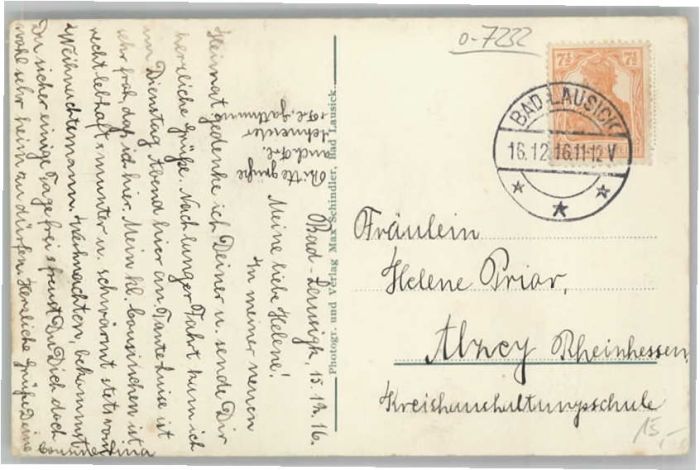 o-7232
7½ 7½
BAD LAUSICK
16.12.16.11-12V
Fräulein
Helene Priar,
Alzey Rheinhessen,
Kreishaushaltungsschule
15,-
Photogr. und Verlag Max Schindler, Bad Lausick
Bad-Lausigk, 15. 12. 16.
Meine liebe Helene!
In meiner neuen
Heimat gedenke ich Deiner u. sende Dir
herzliche Grüße. Nach langer Fahrt kam ich
am Dienstag Abend hier an Tante Luise ist
sehr froh, daß ich hier. Mein kl. Cousinchen ist
recht lebhaft u. munter u. schwärmt stets vom
Weihnachtsmann. Weihnachten bekommst
Du sicher einige Tage frei u. freust Du Dich doch
wohl sehr heim zu dürfen. Herzliche Grüße Deine
Cousine
Bitte grüße
auch Frl.
Schneider